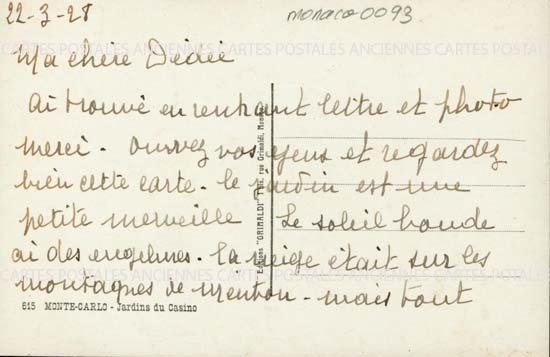 22-3-28
monaco0093
CARTES POSTALES ANCIENNES CARTES POSTALES ANCIENNES CARTES POSTALES
Ma chère Dédée
ai trouvé en rentrant lettre et photo
merci - ouvrez vos yeux et regardez
bien cette carte - le jardin est une
petite merveille Le soleil boude
ai des engelures - la neige était sur les
montagnes de Menton - mais tout
Editions "GRIMALDI" rue Grimaldi, Monaco
615 MONTE-CARLO - Jardins du Casino